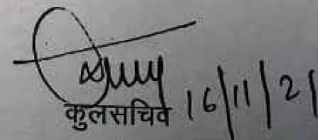 कुलसचिव 16/11/21